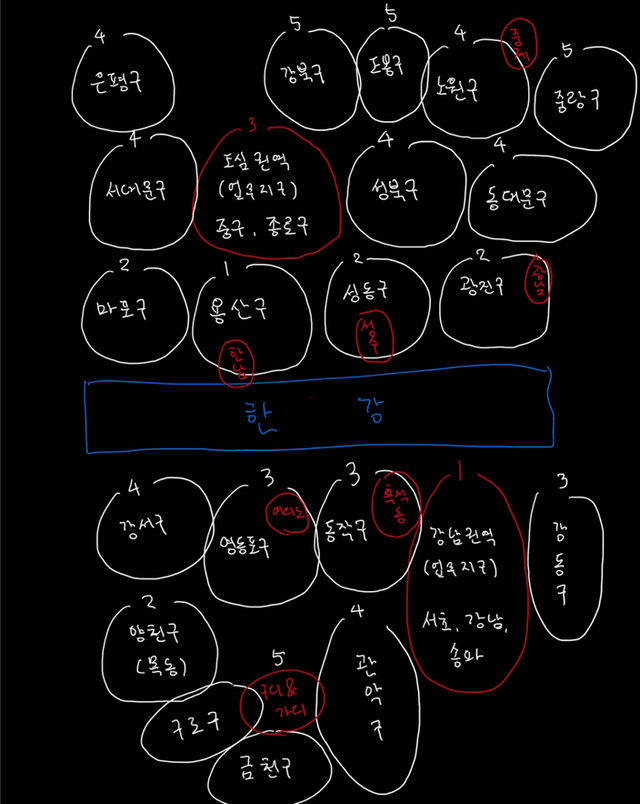 4
은평구
5
강북구
5
도봉구
4
노원구
중계
5
중랑구
4
서대문구
3
도심 권역
(업무지구)
중구, 종로구
4
성북구
4
동대문구
2
마포구
1
용산구
한남
2
성동구
성수
2
광진구
광남
한 강
4
강서구
3
영등포구
여의도
3
동작구
흑석동
1
강남권역
(업무지구)
서초, 강남,
송파
3
강동구
2
양천구
(목동)
구로구
5
구디&
가디
금천구
4
관악구